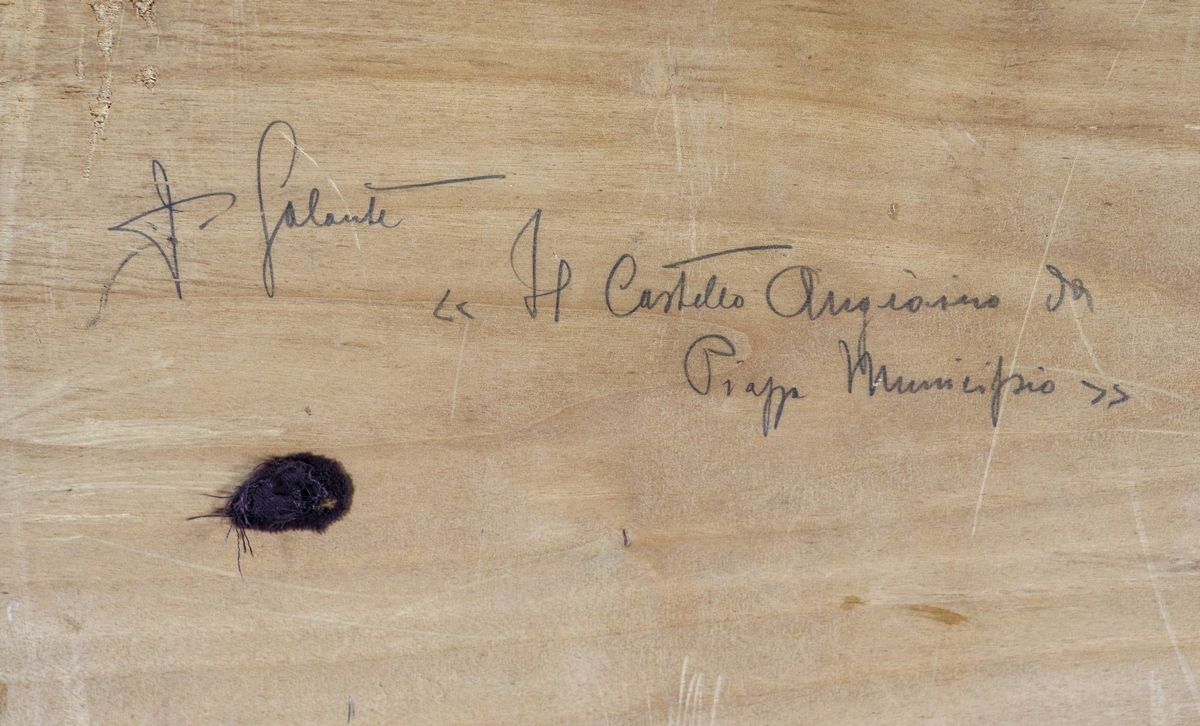 F. Galante
« Il Castello Angioino da
Piazza Municipio »